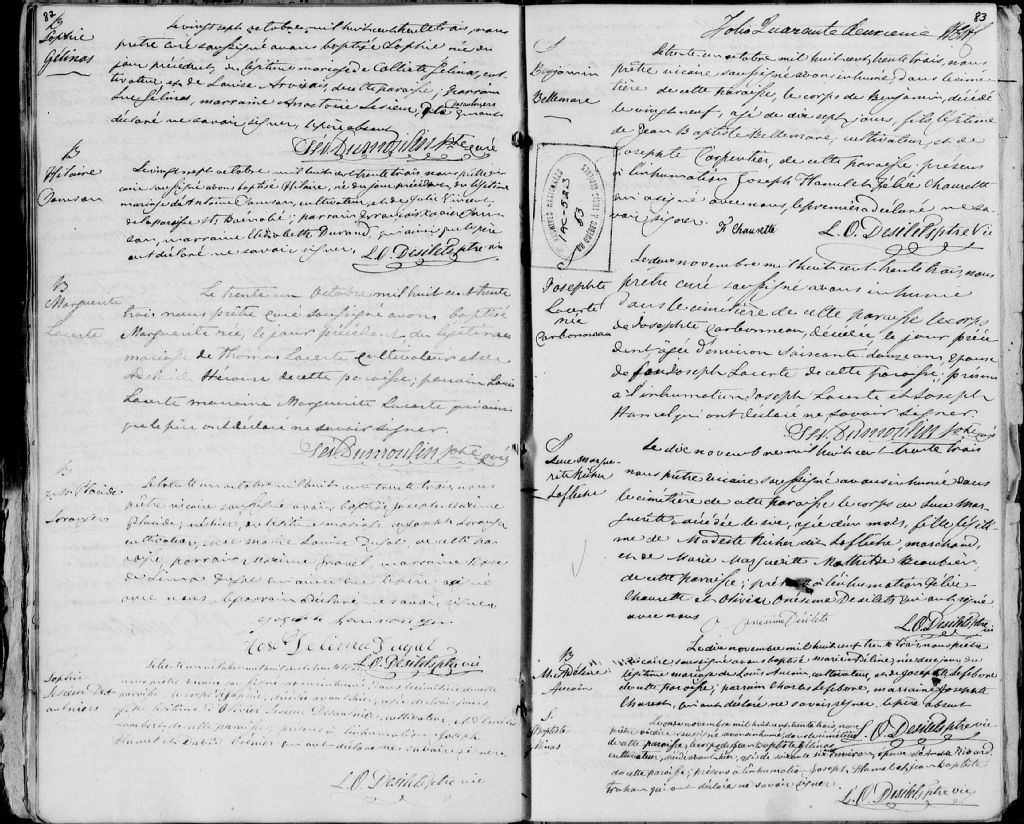 82
B
Sophie
Gélinas
Le vingt sept octobre, mil huit cent trente trois, nous
prêtre curé soussigné avons baptisé Sophie née du
jour précédent du légitime mariage de Calixte Gélinas, cul
tivateur et de Louise de cette paroisse; parrain
Luc Gélinas, marraine Lesieur, qui ont
déclaré ne savoir signer, le père absent
Sév. Dumoulin Ptre curé
B
Hilaire
Damsan
Le vingt sept octobre mil huit cent trente trois nous prêtre vi
caire soussigné avons baptisé Hilaire, né du jour précédent, du légitime
mariage d'Antoine cultivateur, et de Julie Vincent,
de la paroisse St. Barnabé; parrain François
marraine Elizabeth Durand, qui ainsi que le père
ont déclaré ne savoir signer.
L. O. Desilets ptre vic
B
Marguerite
Lacerte
Le trente un Octobre mil huit cent trente
trois nous prêtre curé soussigné avons baptisé
Marguerite née, le jour précédent du légitime
mariage de Thomas Lacerte cultivateur et de
Héroux de cette paroisse; parrain Louis
Lacerte marraine Marguerite Lacerte qui ainsi
que le père ont déclaré ne savoir signer.
Sév. Dumoulin ptre curé
B
Placide
Loranger
Le trente un octobre mil huit cent trente trois, nous
prêtre vicaire soussigné avons baptisé Joseph Maxime
Placide, né hier, du légitime mariage de Joseph Loranger
cultivateur, et de Marie Louise Dugal, de cette pa
roisse, parrain Maxime marraine Rose
de Lima Dugal qui ainsi que le père a signé
avec nous, le parrain a déclaré ne savoir signer
Rose Delima Dugal
L. O. Desilets ptre vic
Sophie
Lesieur Des
aulniers
prêtre vicaire soussigné avons inhumé dans le cimetière de cette
paroisse le corps de Sophie,
fille légitime d'Olivier Lesieur Desaulniers, cultivateur, et
de cette paroisse, présens à l'inhumation Joseph
Hamel et David qui ont déclaré ne savoir signer
L. O. Desilets ptre vic
83
Folio Quarante deuxieme
S
Benjamin
Bellemare
Le trente un octobre mil huit cent trente trois, nous
prêtre vicaire soussigné avons inhumé dans le cime
tière de cette paroisse, le corps de Benjamin, décédé
le vingt neuf, agé de dix sept jours, fils légitime
de Jean Baptiste Bellemare, cultivateur, et de
Josephte Carpentier, de cette paroisse, présens
à l'inhumation Joseph Hamel et Félix Chaurette
qui a signé avec nous, le premier a déclaré ne sa
voir signer.
Fx Chaurette
L. O. Desilets ptre Vic
ARCHIVES NATIONALES
1AC-523
83
DU QUÉBEC À TROIS-RIVIÈRES
S
Josephte
Lacerte
née
Carbonneau
Le deux novembre mil huit cent trente trois, nous
prêtre curé soussigné avons inhumé
dans le cimetière de cette paroisse le corps
de Josephte Carbonneau, décédée, le jour précé
dent, agée d'environ soixante douze ans, Epouse
de feu Joseph Lacerte de cette paroisse; présens
à l'inhumation, Joseph Lacerte et Joseph
Hamel qui ont déclaré ne savoir signer.
Sév. Dumoulin ptre curé
S
Luce Margue
rite Richer
Laflèche
Le dix novembre mil huit cent trente trois
nous prêtre vicaire soussigné avons inhumé dans
le cimétière de cette paroisse le corps de Luce Mar
guerite, décédée le six, agée d'un mois, fille légiti
me de Modeste Richer dit Laflèche, marchand,
et de Marie Marguerite Mathilde Beaubien,
de cette paroisse; présens à l'inhumation Félix
Chaurette et Olivier Onésime Desilets qui ont signé
avec nous
Onésime Desilets
L. O. Desilets ptre vic
B
Me Adeline
Aucoin
Le dix novembre mil huit cent trente trois, nous prêtre
vicaire soussigné avons baptisé marie Adeline, née du jour, du
légitime mariage de Louis Aucoin, cultivateur, et de Josephte Lefebvre
de cette paroisse; parrain Charles Lefebvre, marraine Josephte
Charest, qui ont déclaré ne savoir signer, le père absent
L. O. Desilets ptre vic
S.
J Baptiste
Gélinas
Le onze novembre mil huit cent trente trois, nous
prêtre vicaire soussigné avons inhumé dans le cimetière
de cette paroisse, le corps de Jean Baptiste Gélinas
cultivateur, décédé avant hier, agé de soixante six environ, époux de Rivard,
de cette paroisse; présens à l'inhumation Joseph Hamel et Jean Baptiste
Trahan qui ont déclaré ne savoir signer.
L. O. Desilets ptre vic